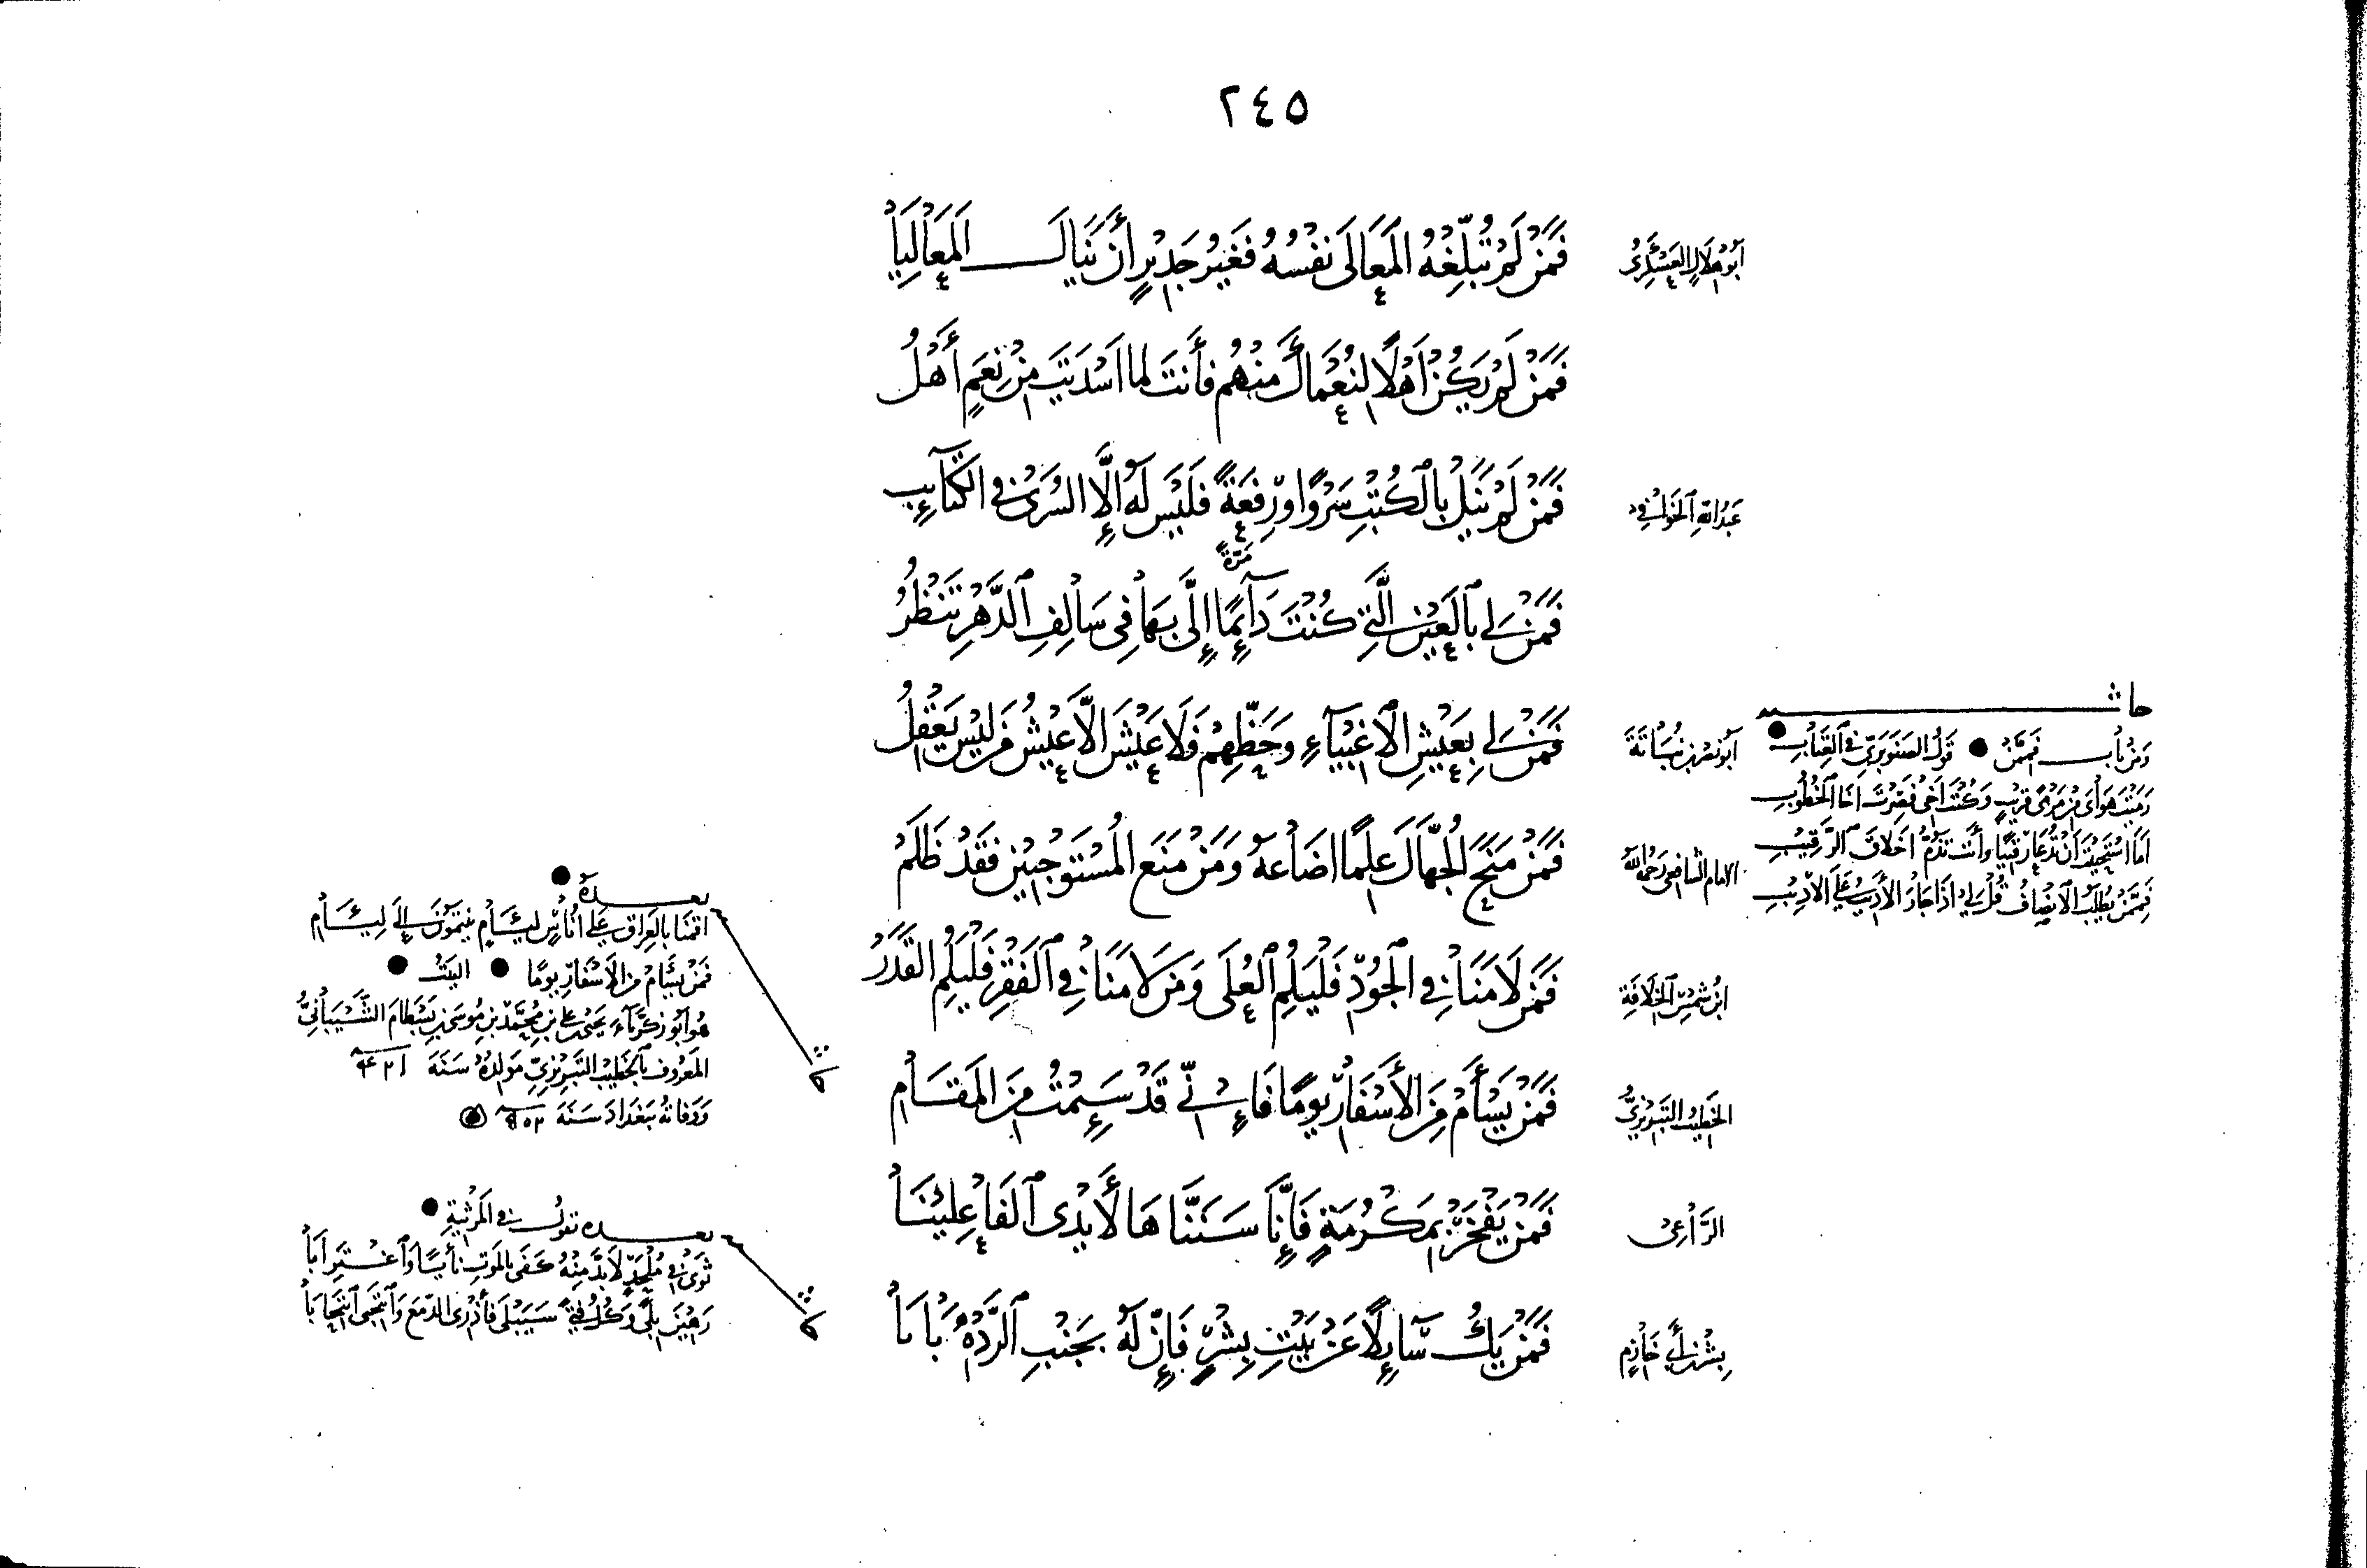 ٢٤٥
أبو هلال العسكري
فَمَنْ لَمْ تُبَلِّغْهُ الْمَعَالِي نَفْسُهُ فَغَيْرُ جَدِيرٍ أَنْ يَنَالَ الْمَعَالِيَا
فَمَنْ لَمْ يَكُنْ أَهْلًا لِنُعْمَاكَ مِنْهُمُ فَأَنْتَ لِمَا أَسْدَيْتَ مِنْ نِعَمٍ أَهْلُ
عبد الله الخوافي
فَمَنْ لَمْ يَنَلْ بِالْكُتْبِ سَرْوًا وَرِفْعَةً فَلَيْسَ لَهُ إِلَّا السُّرَى فِي الْكَتَائِبِ
مَرَّةً
فَمَنْ لِي بِالْعَيْنِ الَّتِي كُنْتَ دَائِمًا إِلَيَّ بِهَا فِي سَالِفِ الدَّهْرِ تَنْظُرُ
أبو نصر بن نباتة
فَمَنْ لِي بِعَيْشِ الْأَغْبِيَاءِ وَحَظِّهِمْ فَلَا عَيْشَ إِلَّا عَيْشُ مَنْ لَيْسَ يَعْقِلُ
الإمام الشافعي رحمه الله
فَمَنْ مَنَحَ الْجُهَّالَ عِلْمًا أَضَاعَهُ وَمَنْ مَنَعَ الْمُسْتَوْجِبِينَ فَقَدْ ظَلَمْ
ابن شمس الخلافة
فَمَنْ لَامَنَا فِي الْجُودِ فَلْيَلُمِ الْعُلَى وَمَنْ لَامَنَا فِي الْفَقْرِ فَلْيَلُمِ الْقَدَرْ
الخطيب التبريزي
فَمَنْ يَسْأَمْ مِنَ الْأَسْفَارِ يَوْمًا فَإِنِّي قَدْ سَئِمْتُ مِنَ الْمَقَامِ
الراعي
فَمَنْ يَفْخَرْ بِمَكْرُمَةٍ فَإِنَّا سَنَنَّاهَا لِأَيْدِي الْفَاعِلِينَا
بشر بن أبي خازم
فَمَنْ يَكُ سَائِلًا عَنْ بَيْتِ بِشْرٍ فَإِنَّ لَهُ بِجَنْبِ الرَّدْهِ بَابَا
حاشية
ومن باب فمن قول الصنوبري في العتاب
رميت هواي من مرمى قريب وكنت أخي فصرت أخا الخطوب
أما استحييت أن تدعا رقيبا وأنت تذم أخلاق الرقيب
فممن يطلب الإنصاف قل لي إذا جار الأديب على الأديب
بعده
أقمنا بالعراق على أناس لئام ينتمون إلى لئام
فمن يسأم من الأسفار يوما البيت
هو أبو زكرياء يحيى بن علي بن محمد بن موسى بن بسطام الشيباني
المعروف بالخطيب التبريزي مولده سنة ٤٢١
ووفاته ببغداد سنة
بعده يقول في المرثية
ثوى في ملحد لا بد منه كفى بالموت نأيا واغترابا
رهين بلى وكل فتى سيبلى فأذري الدمع وانتحبي انتحابا